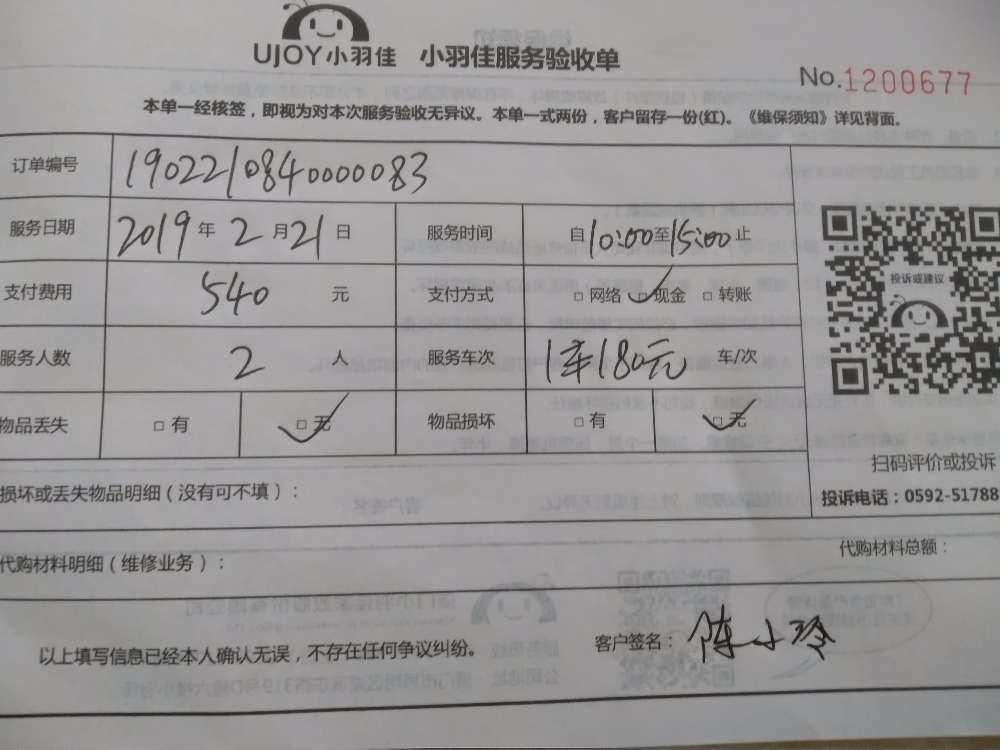 UJOY小羽佳 小羽佳服务验收单
No.1200677
本单一经核签，即视为对本次服务验收无异议。本单一式两份，客户留存一份(红)。《维保须知》详见背面。
订单编号 1902210840000083
服务日期 2019 年 2 月 21 日 服务时间 自 10:00 至 15:00 止
支付费用 540 元 支付方式 □ 网络 □ 现金 □ 转账
服务人数 2 人 服务车次 1车180元 车/次
物品丢失 □ 有 □ 无 物品损坏 □ 有 □ 无
投诉或建议
扫码评价或投诉
投诉电话：0592-51788
损坏或丢失物品明细（没有可不填）：
代购材料明细（维修业务）： 代购材料总额：
以上填写信息已经本人确认无误，不存在任何争议纠纷。 客户签名： 陈小玲